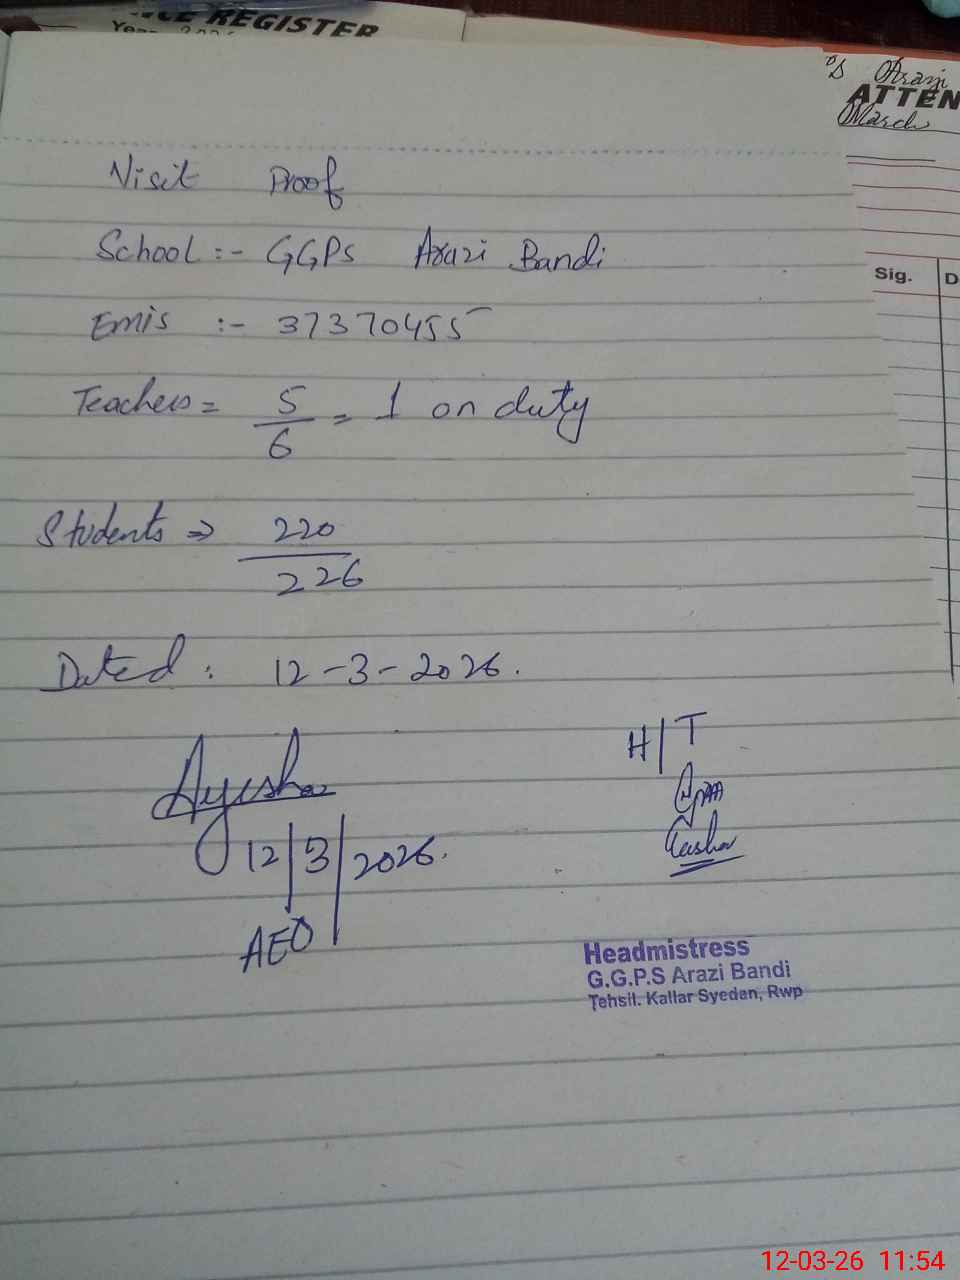 CE REGISTER
Arazi
ATTEN
March
Sig.
D
Visit Proof
School :- GGPS Arazi Bandi
Emis :- 37370455
Teachers = 5/6 = 1 on duty
Students ⇒ 220
226
Dated : 12-3-2026.
H/T
Ayesha
12/3/2026.
AEO
Headmistress
G.G.P.S Arazi Bandi
Tehsil. Kallar Syedan, Rwp
12-03-26 11:54